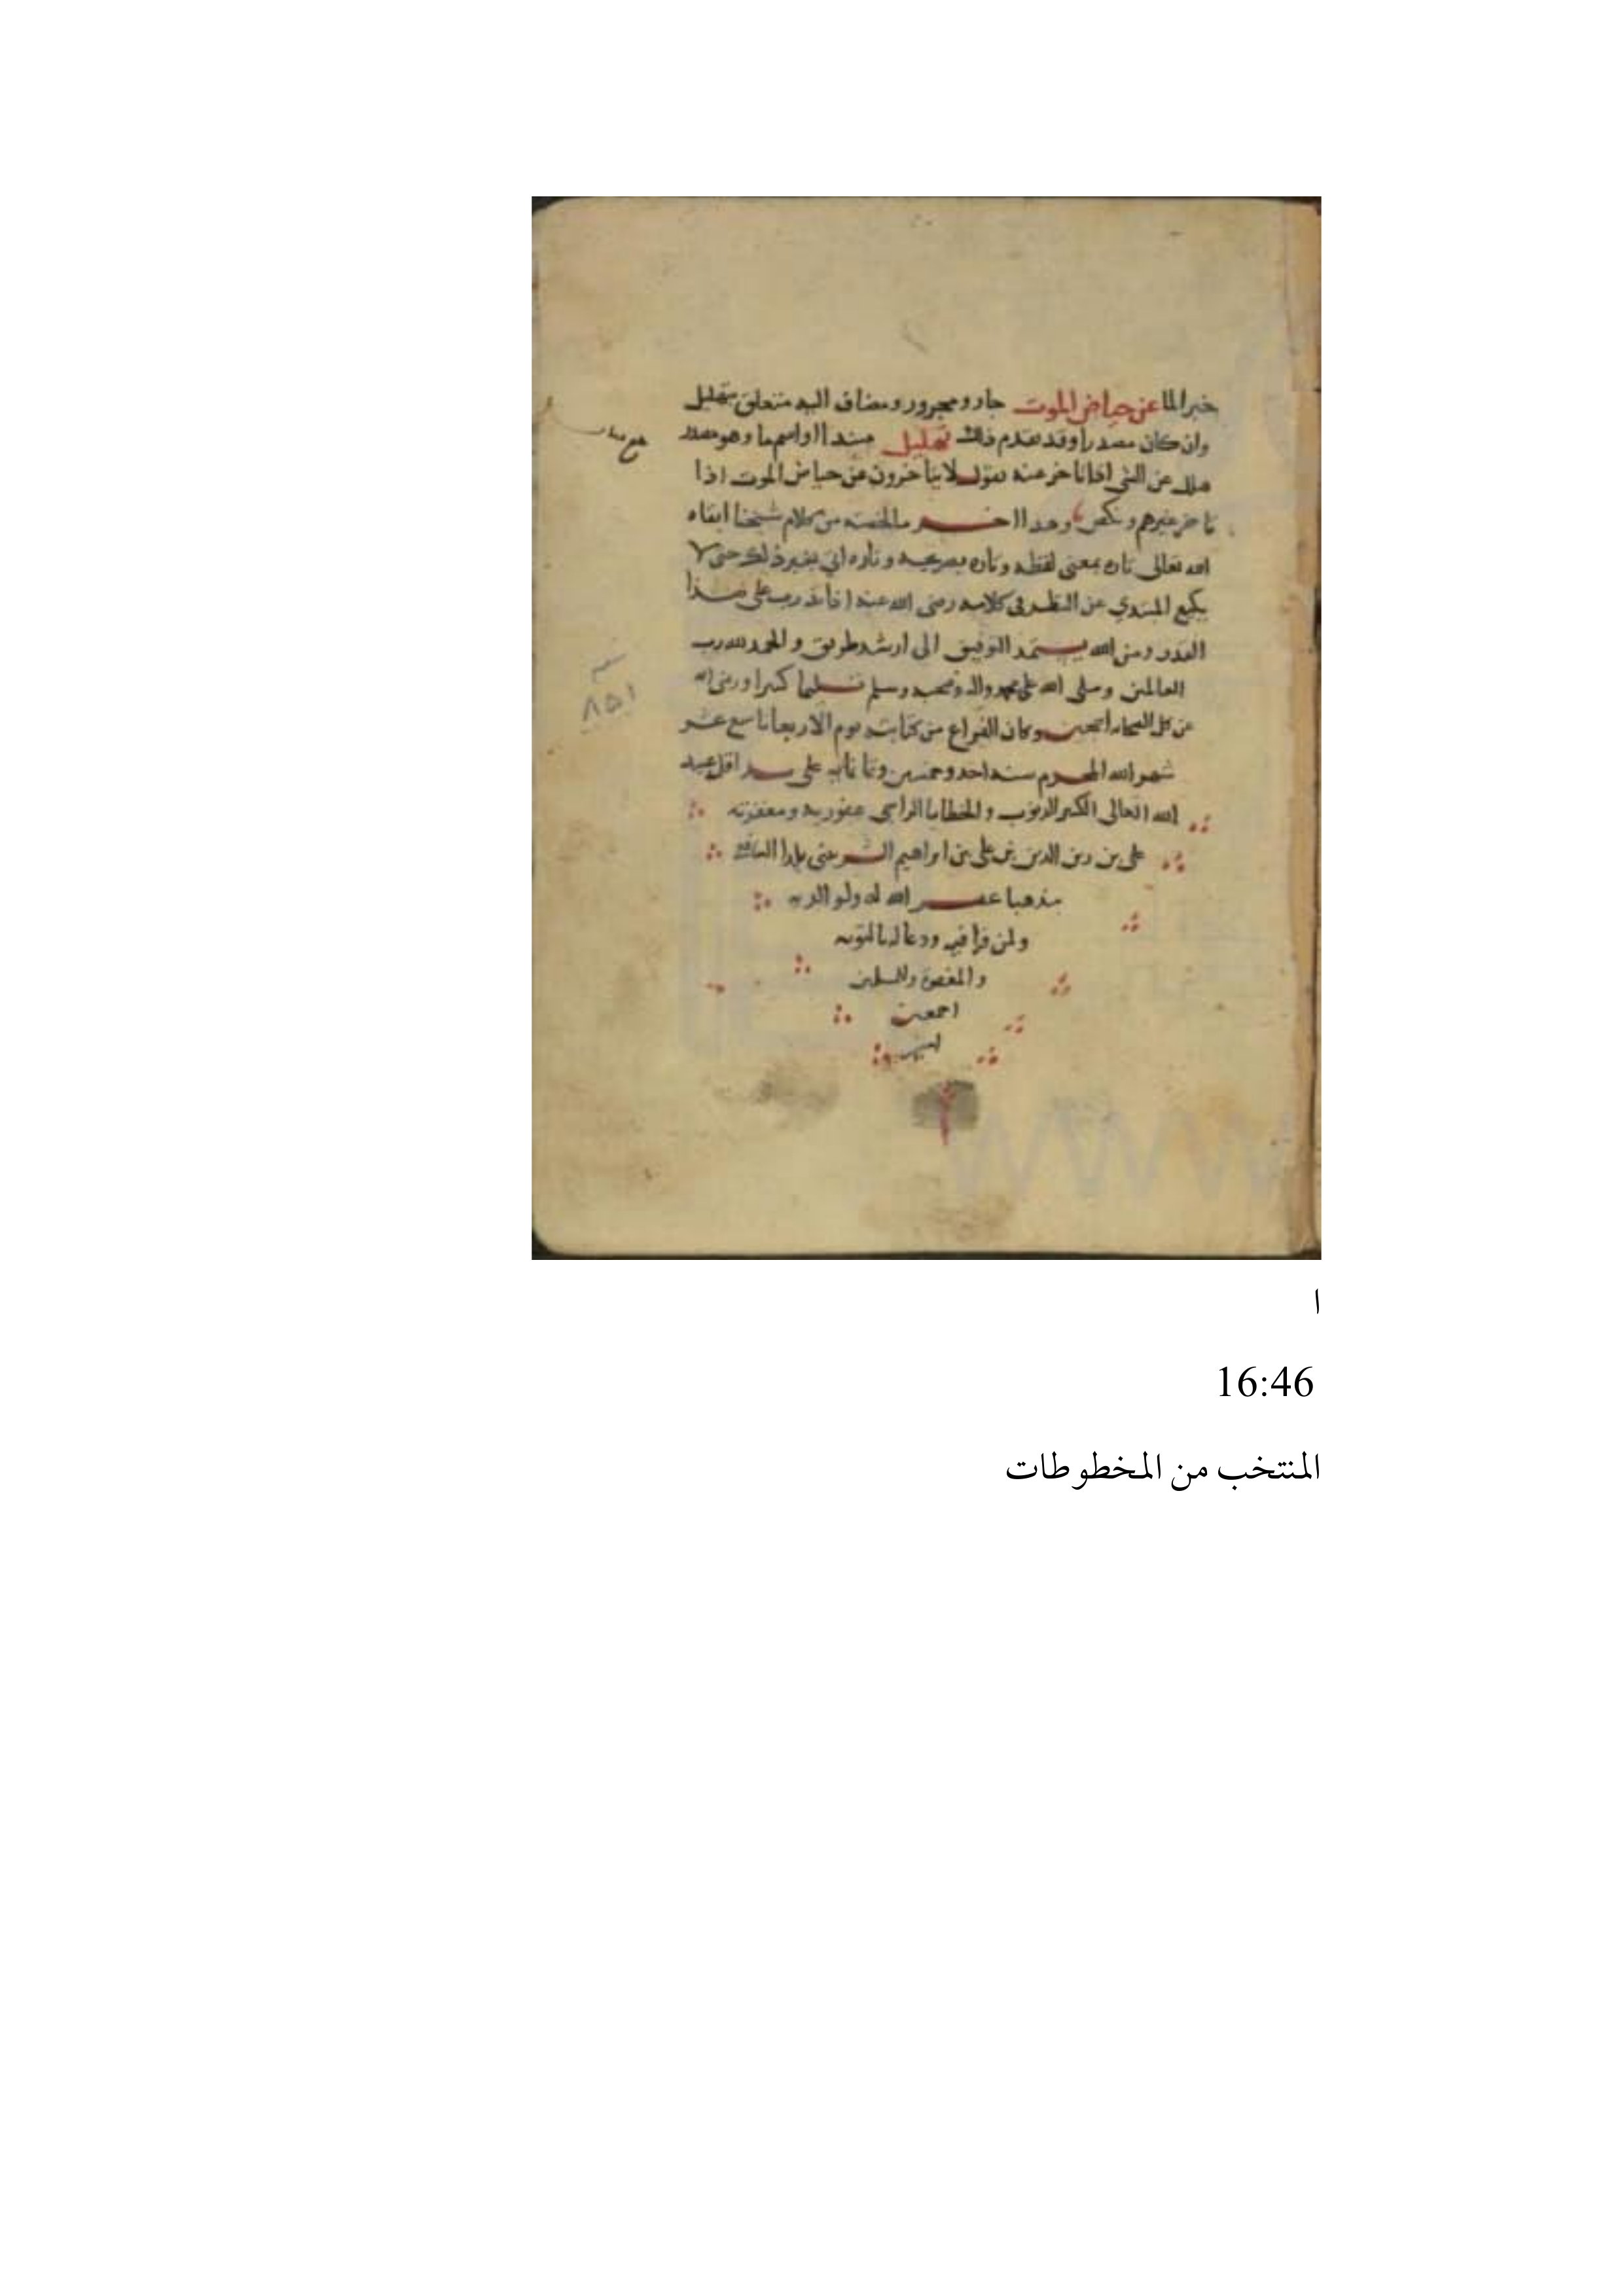 خبر لما عن حياض الموت جار ومجرور ومضاف اليه متعلق بتهليل
وان كان مصدرا وقد تقدم ذلك تهليل مبتدا او اسم ما وهو مصدر
هلل عن الشي اذا تاخر عنه يقول لا يتاخرون عن حياض الموت اذا
تاخر غيرهم ونكص وهذا اخر ما لخصته من كلام شيخنا ابقاه
الله تعالى تارة بمعنى لفظه وتارة بصريحه وتارة اتي بغير ذلك حتى لا
يكيع المبتدي عن النظر في كلامه رضي الله عنه اذا تدرب على هذا
القدر ومن الله يستمد التوفيق الى ارشد طريق والحمد لله رب
العالمين وصلى الله على محمد واله وصحبه وسلم تسليما كثيرا ورضي الله
عن كل الصحابة اجمعين وكان الفراغ من كتابته يوم الاربعا تاسع عشر
شهر الله المحرم سنة احد وخمسين وثمانمايه على يد اقل عبيد
الله تعالى الكثير الذنوب والخطايا الراجي عفو ربه ومغفرته
على بن زين الدين بن على بن ابراهيم الشربيني بلدا الشافعي
مذهبا غفر الله له ولوالديه
ولمن قرا فيه ودعا له بالتوبه
والمغفرة والمسلمين
اجمعين
امين
سنة
٨٥١
ا
16:46
المنتخب من المخطوطات